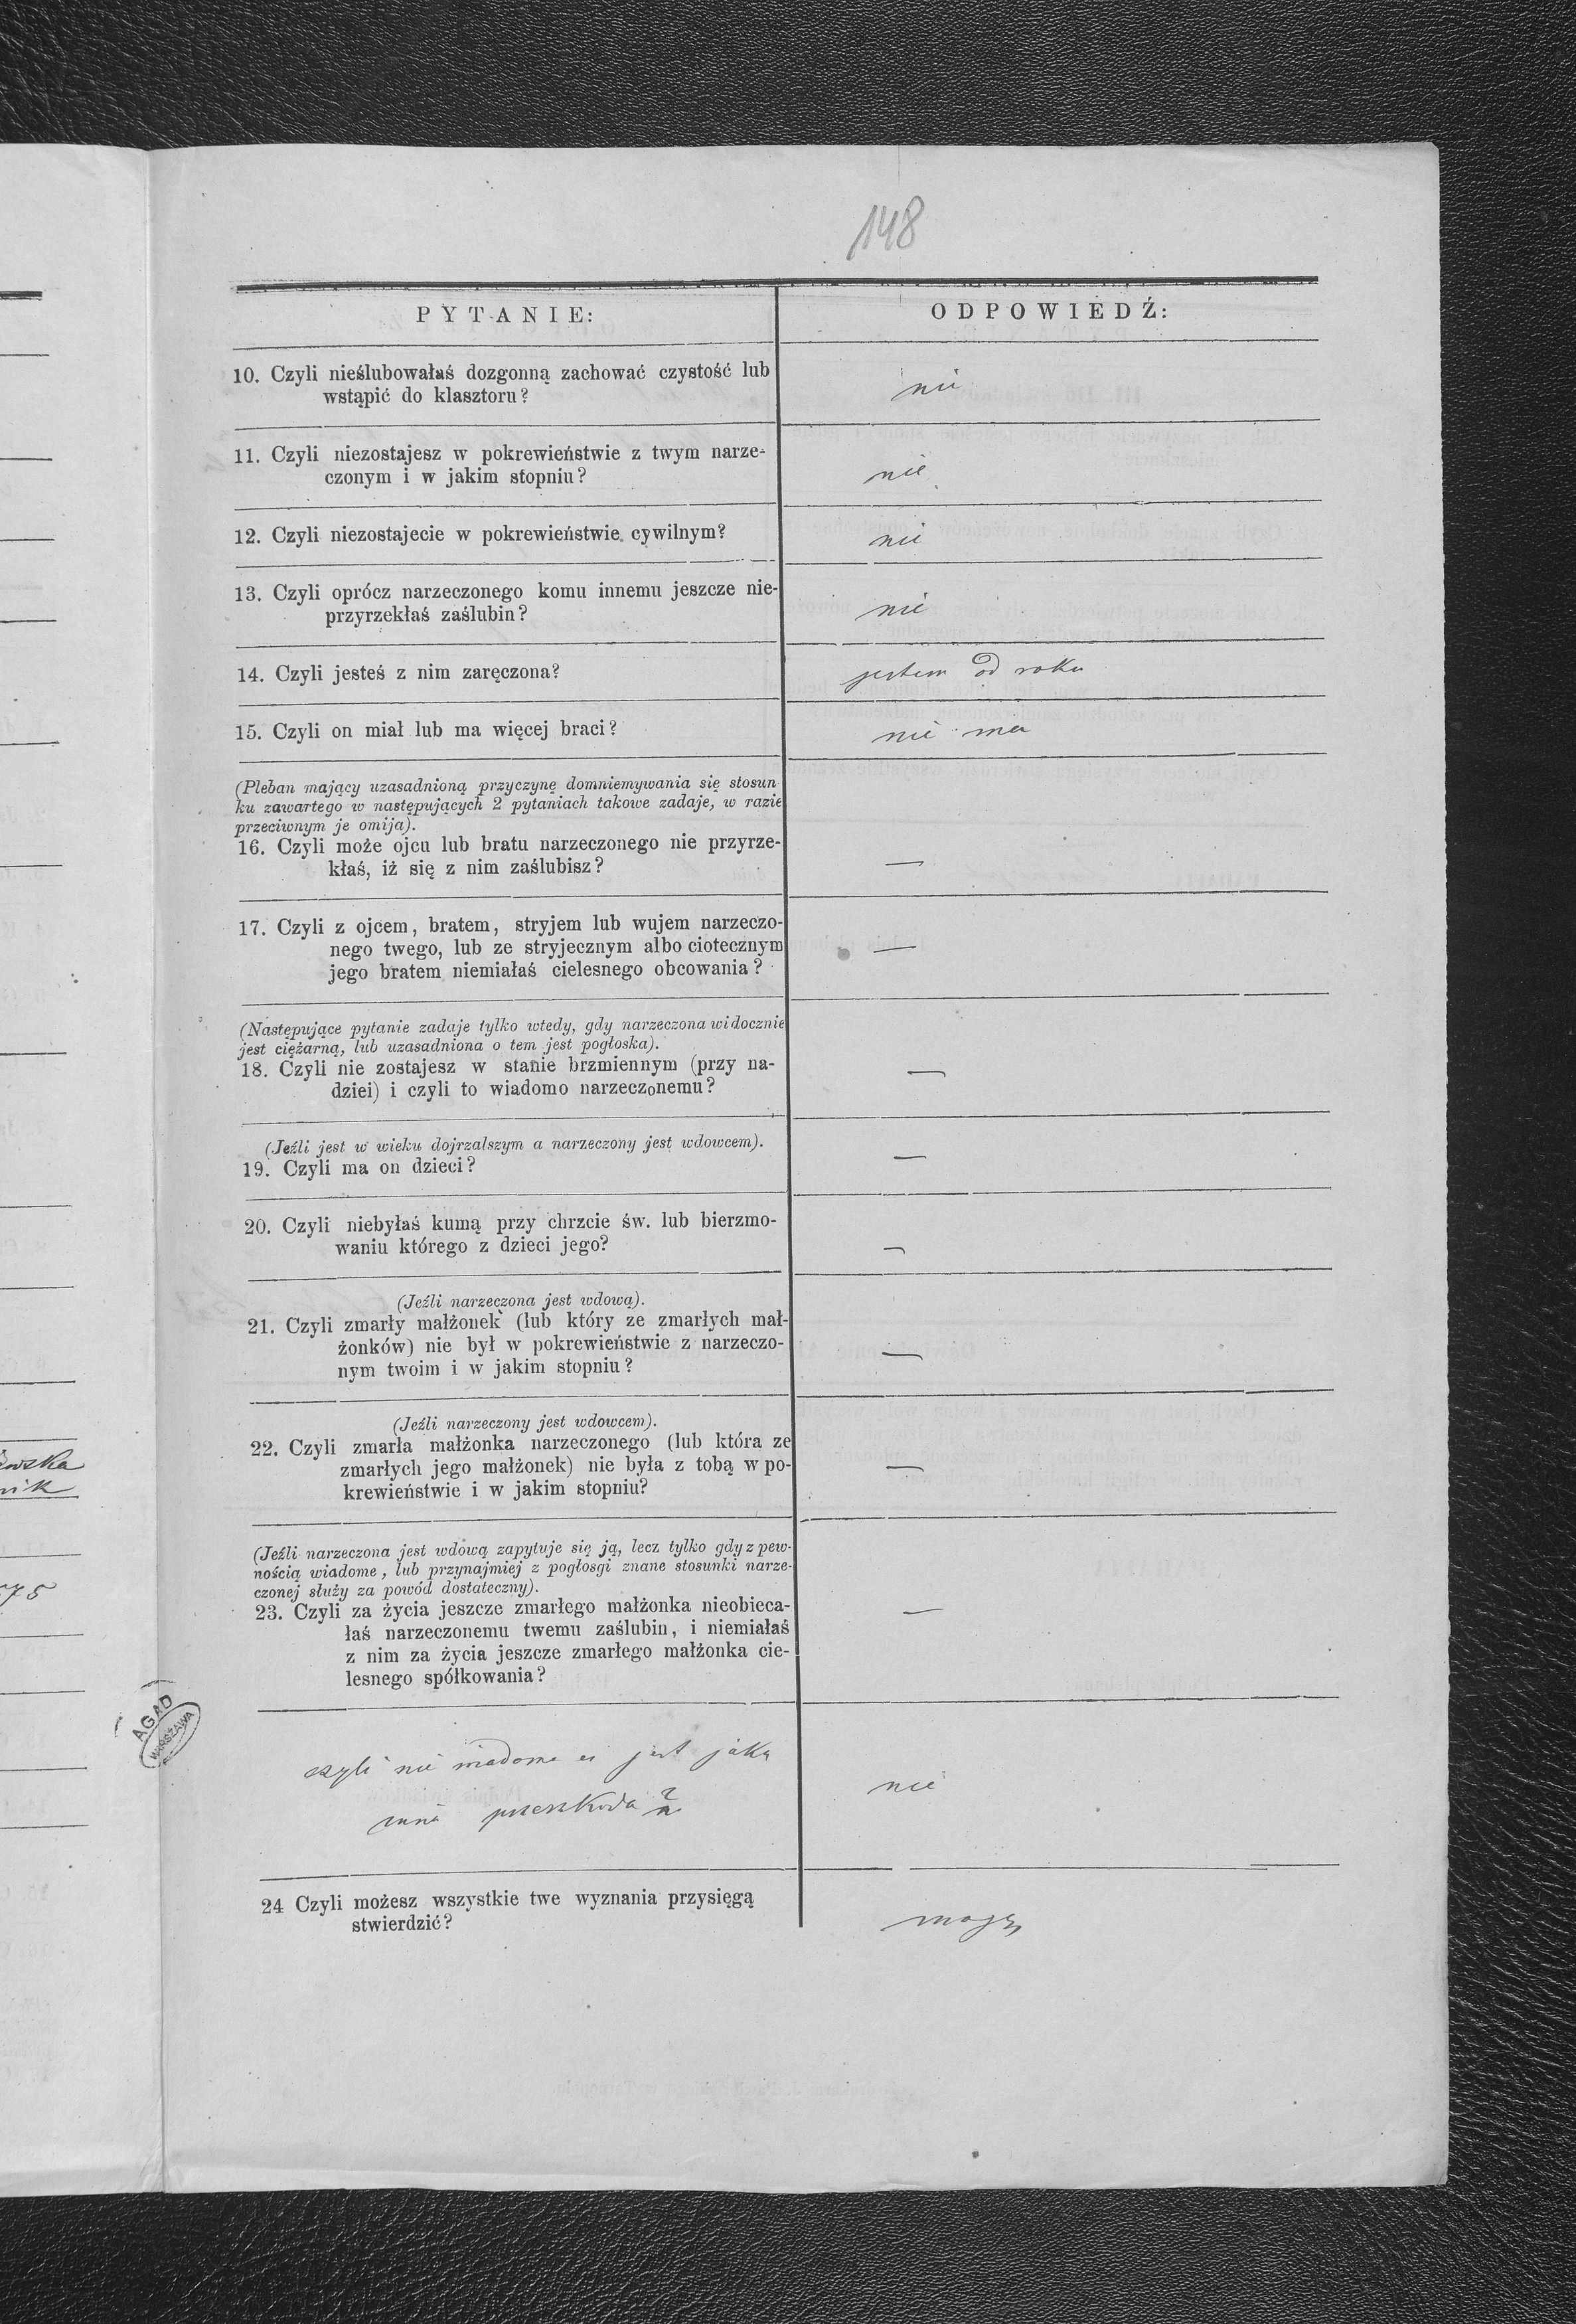 148
PYTANIE:
ODPOWIEDŹ:
10. Czyli nieślubowałaś dozgonną zachować czystość lub
wstąpić do klasztoru?
nie
11. Czyli niezostajesz w pokrewieństwie z twym narze-
czonym i w jakim stopniu?
nie
12. Czyli niezostajecie w pokrewieństwie cywilnym?
nie
13. Czyli oprócz narzeczonego komu innemu jeszcze nie-
przyrzekłaś zaślubin?
nie
14. Czyli jesteś z nim zaręczona?
jestem od roku
15. Czyli on miał lub ma więcej braci?
nie ma
(Pleban mający uzasadnioną przyczynę domniemywania się stosun-
ku zawartego w następujących 2 pytaniach takowe zadaje, w razie
przeciwnym je omija).
16. Czyli może ojcu lub bratu narzeczonego nie przyrze-
kłaś, iż się z nim zaślubisz?
—
17. Czyli z ojcem, bratem, stryjem lub wujem narzeczo-
nego twego, lub ze stryjecznym albo ciotecznym
jego bratem niemiałaś cielesnego obcowania?
—
(Następujące pytanie zadaje tylko wtedy, gdy narzeczona widocznie
jest ciężarną, lub uzasadniona o tem jest pogłoska).
18. Czyli nie zostajesz w stanie brzmiennym (przy na-
dziei) i czyli to wiadomo narzeczonemu?
—
(Jeźli jest w wieku dojrzalszym a narzeczony jest wdowcem).
19. Czyli ma on dzieci?
—
20. Czyli niebyłaś kumą przy chrzcie św. lub bierzmo-
waniu którego z dzieci jego?
—
(Jeźli narzeczona jest wdową).
21. Czyli zmarły małżonek (lub który ze zmarłych mał-
żonków) nie był w pokrewieństwie z narzeczo-
nym twoim i w jakim stopniu?
—
(Jeźli narzeczony jest wdowcem).
22. Czyli zmarła małżonka narzeczonego (lub która ze
zmarłych jego małżonek) nie była z tobą w po-
krewieństwie i w jakim stopniu?
—
(Jeźli narzeczona jest wdową zapytuje się ją, lecz tylko gdy z pew-
nością wiadome, lub przynajmiej z pogłosgi znane stosunki narze-
czonej służy za powód dostateczny).
23. Czyli za życia jeszcze zmarłego małżonka nieobieca-
łaś narzeczonemu twemu zaślubin, i niemiałaś
z nim za życia jeszcze zmarłego małżonka cie-
lesnego spółkowania?
—
czyli nie wiadoma ci jest jaka
inna przeszkoda?
nie
24 Czyli możesz wszystkie twe wyznania przysięgą
stwierdzić?
mogę
AGAD
WARSZAWA